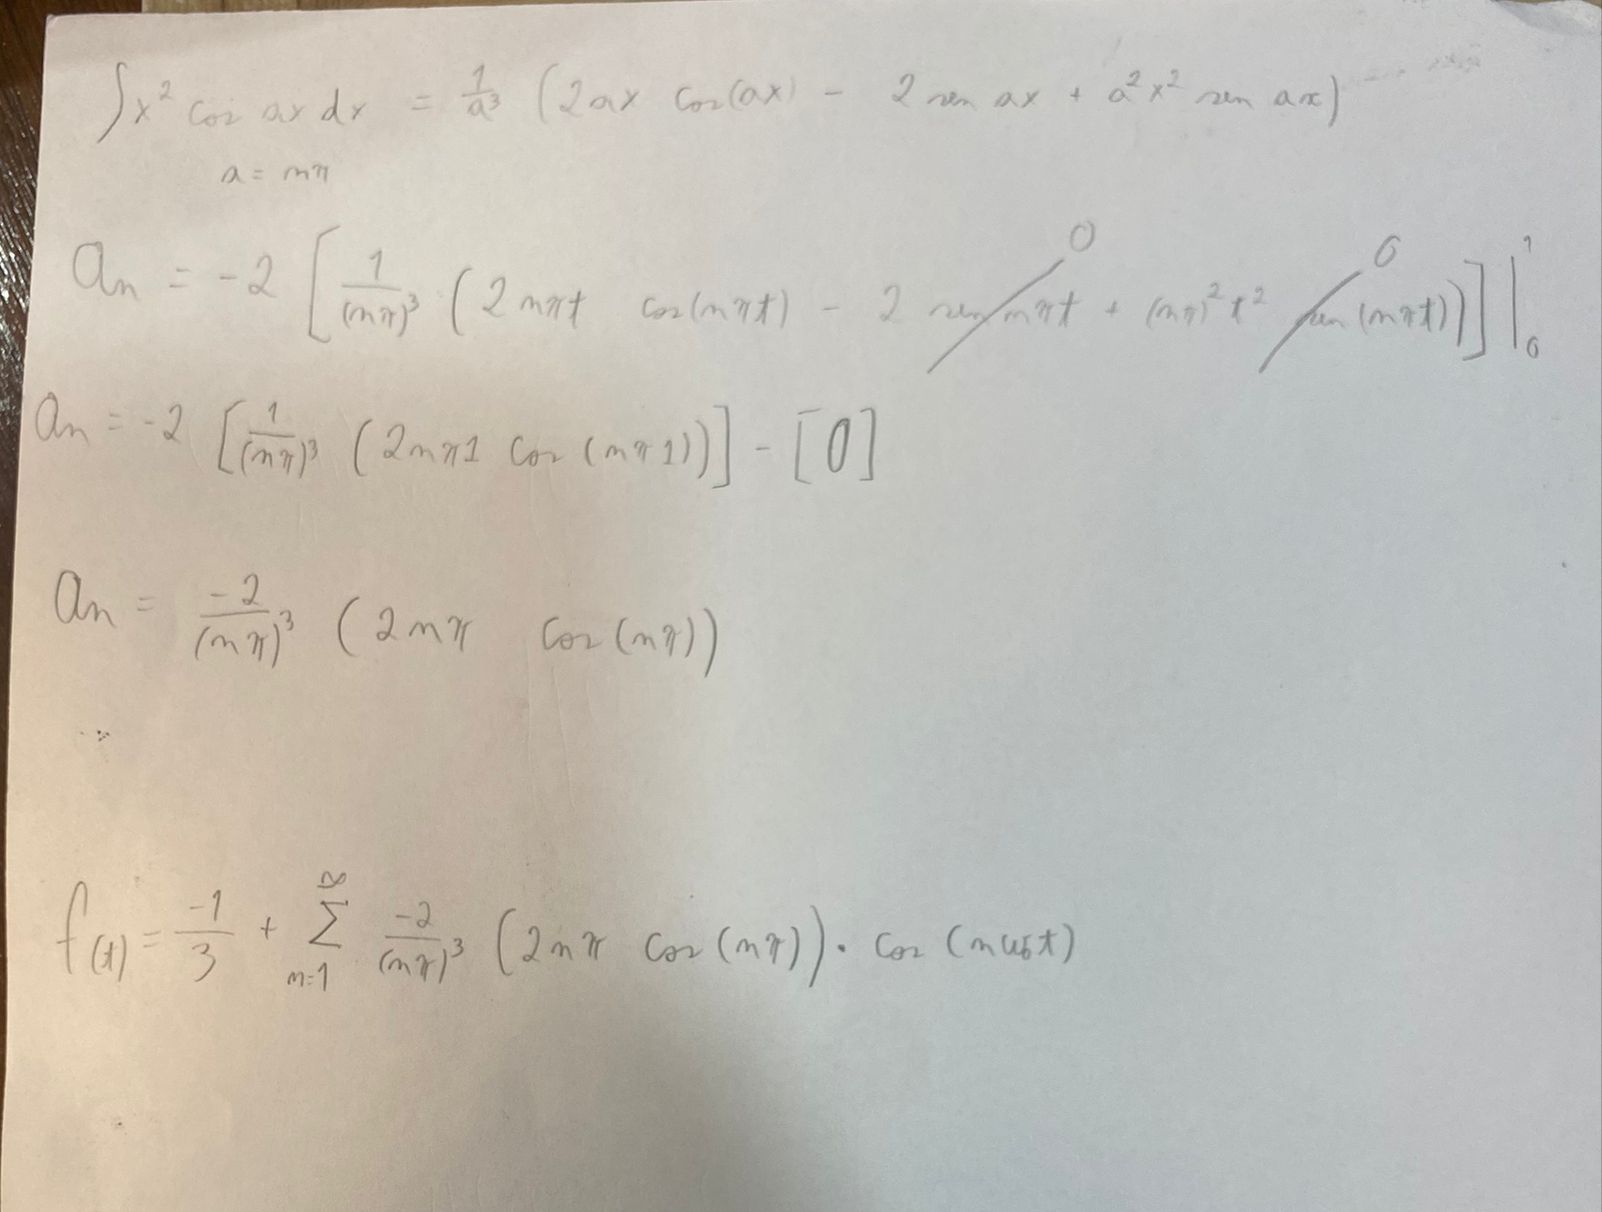 ∫x² cos ax dx = 1/a³ (2ax cos(ax) - 2 sen ax + a²x² sen ax)
a = nπ
an = -2 [1/(nπ)³ (2nπt cos(nπt) - 2 sen nπt + (nπ)²t² sen(nπt))] |₀¹
0 0
an = -2 [1/(nπ)³ (2nπ1 cos(nπ1))] - [0]
an = -2/(nπ)³ (2nπ cos(nπ))
f(t) = -1/3 + ∑ₙ₌₁^∞ -2/(nπ)³ (2nπ cos(nπ)) · cos(nω₀t)